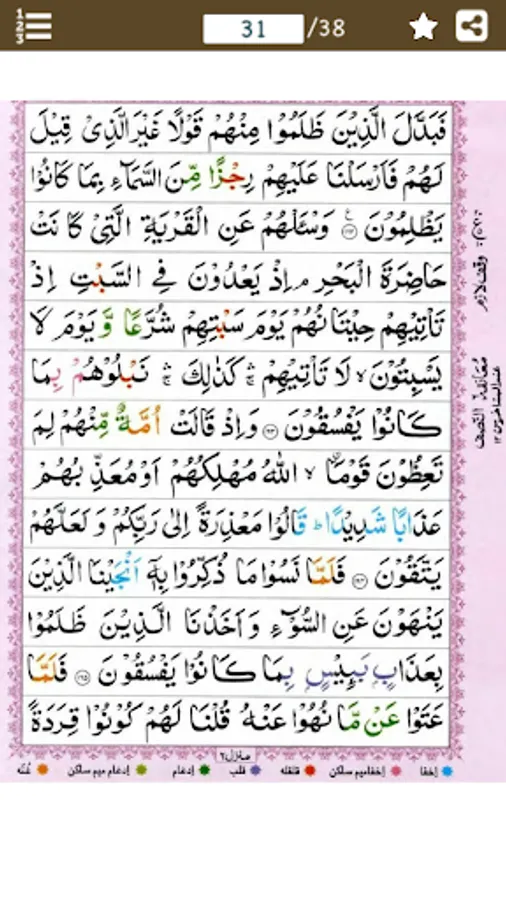 31 /38
فَبَدَّلَ الَّذِيْنَ ظَلَمُوْا مِنْهُمْ قَوْلًا غَيْرَ الَّذِىْ قِيْلَ
لَهُمْ فَاَرْسَلْنَا عَلَيْهِمْ رِجْزًا مِّنَ السَّمَآءِ بِمَا كَانُوْا
يَظْلِمُوْنَ ۝ وَسْـَٔلْهُمْ عَنِ الْقَرْيَةِ الَّتِىْ كَانَتْ
حَاضِرَةَ الْبَحْرِ ۘ اِذْ يَعْدُوْنَ فِى السَّبْتِ اِذْ
تَاْتِيْهِمْ حِيْتَانُهُمْ يَوْمَ سَبْتِهِمْ شُرَّعًا وَّيَوْمَ لَا
يَسْبِتُوْنَ ۙ لَا تَاْتِيْهِمْ ۛ كَذٰلِكَ ۛ نَبْلُوْهُمْ بِمَا
كَانُوْا يَفْسُقُوْنَ ۝ وَاِذْ قَالَتْ اُمَّةٌ مِّنْهُمْ لِمَ
تَعِظُوْنَ قَوْمًا ۙ اللّٰهُ مُهْلِكُهُمْ اَوْ مُعَذِّبُهُمْ
عَذَابًا شَدِيْدًا ؕ قَالُوْا مَعْذِرَةً اِلٰى رَبِّكُمْ وَلَعَلَّهُمْ
يَتَّقُوْنَ ۝ فَلَمَّا نَسُوْا مَا ذُكِّرُوْا بِهٖٓ اَنْجَيْنَا الَّذِيْنَ
يَنْهَوْنَ عَنِ السُّوْٓءِ وَاَخَذْنَا الَّذِيْنَ ظَلَمُوْا
بِعَذَابٍ بَـِٔيْسٍ بِمَا كَانُوْا يَفْسُقُوْنَ ۝ فَلَمَّا
عَتَوْا عَنْ مَّا نُهُوْا عَنْهُ قُلْنَا لَهُمْ كُوْنُوْا قِرَدَةً
منزل ٢
اِخفا اِخفامیم ساکن قلقله قلب اِدغام اِدغام میم ساکن غُنّه
وقف لازم